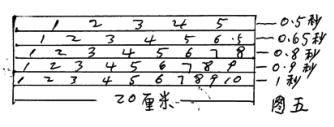 1 2 3 4 5 0.5秒
1 2 3 4 5 6 .5 0.65秒
1 2 3 4 5 6 7 8 0.8秒
1 2 3 4 5 6 7 8 9 0.9秒
1 2 3 4 5 6 7 8 9 10 1秒
20厘米 图五